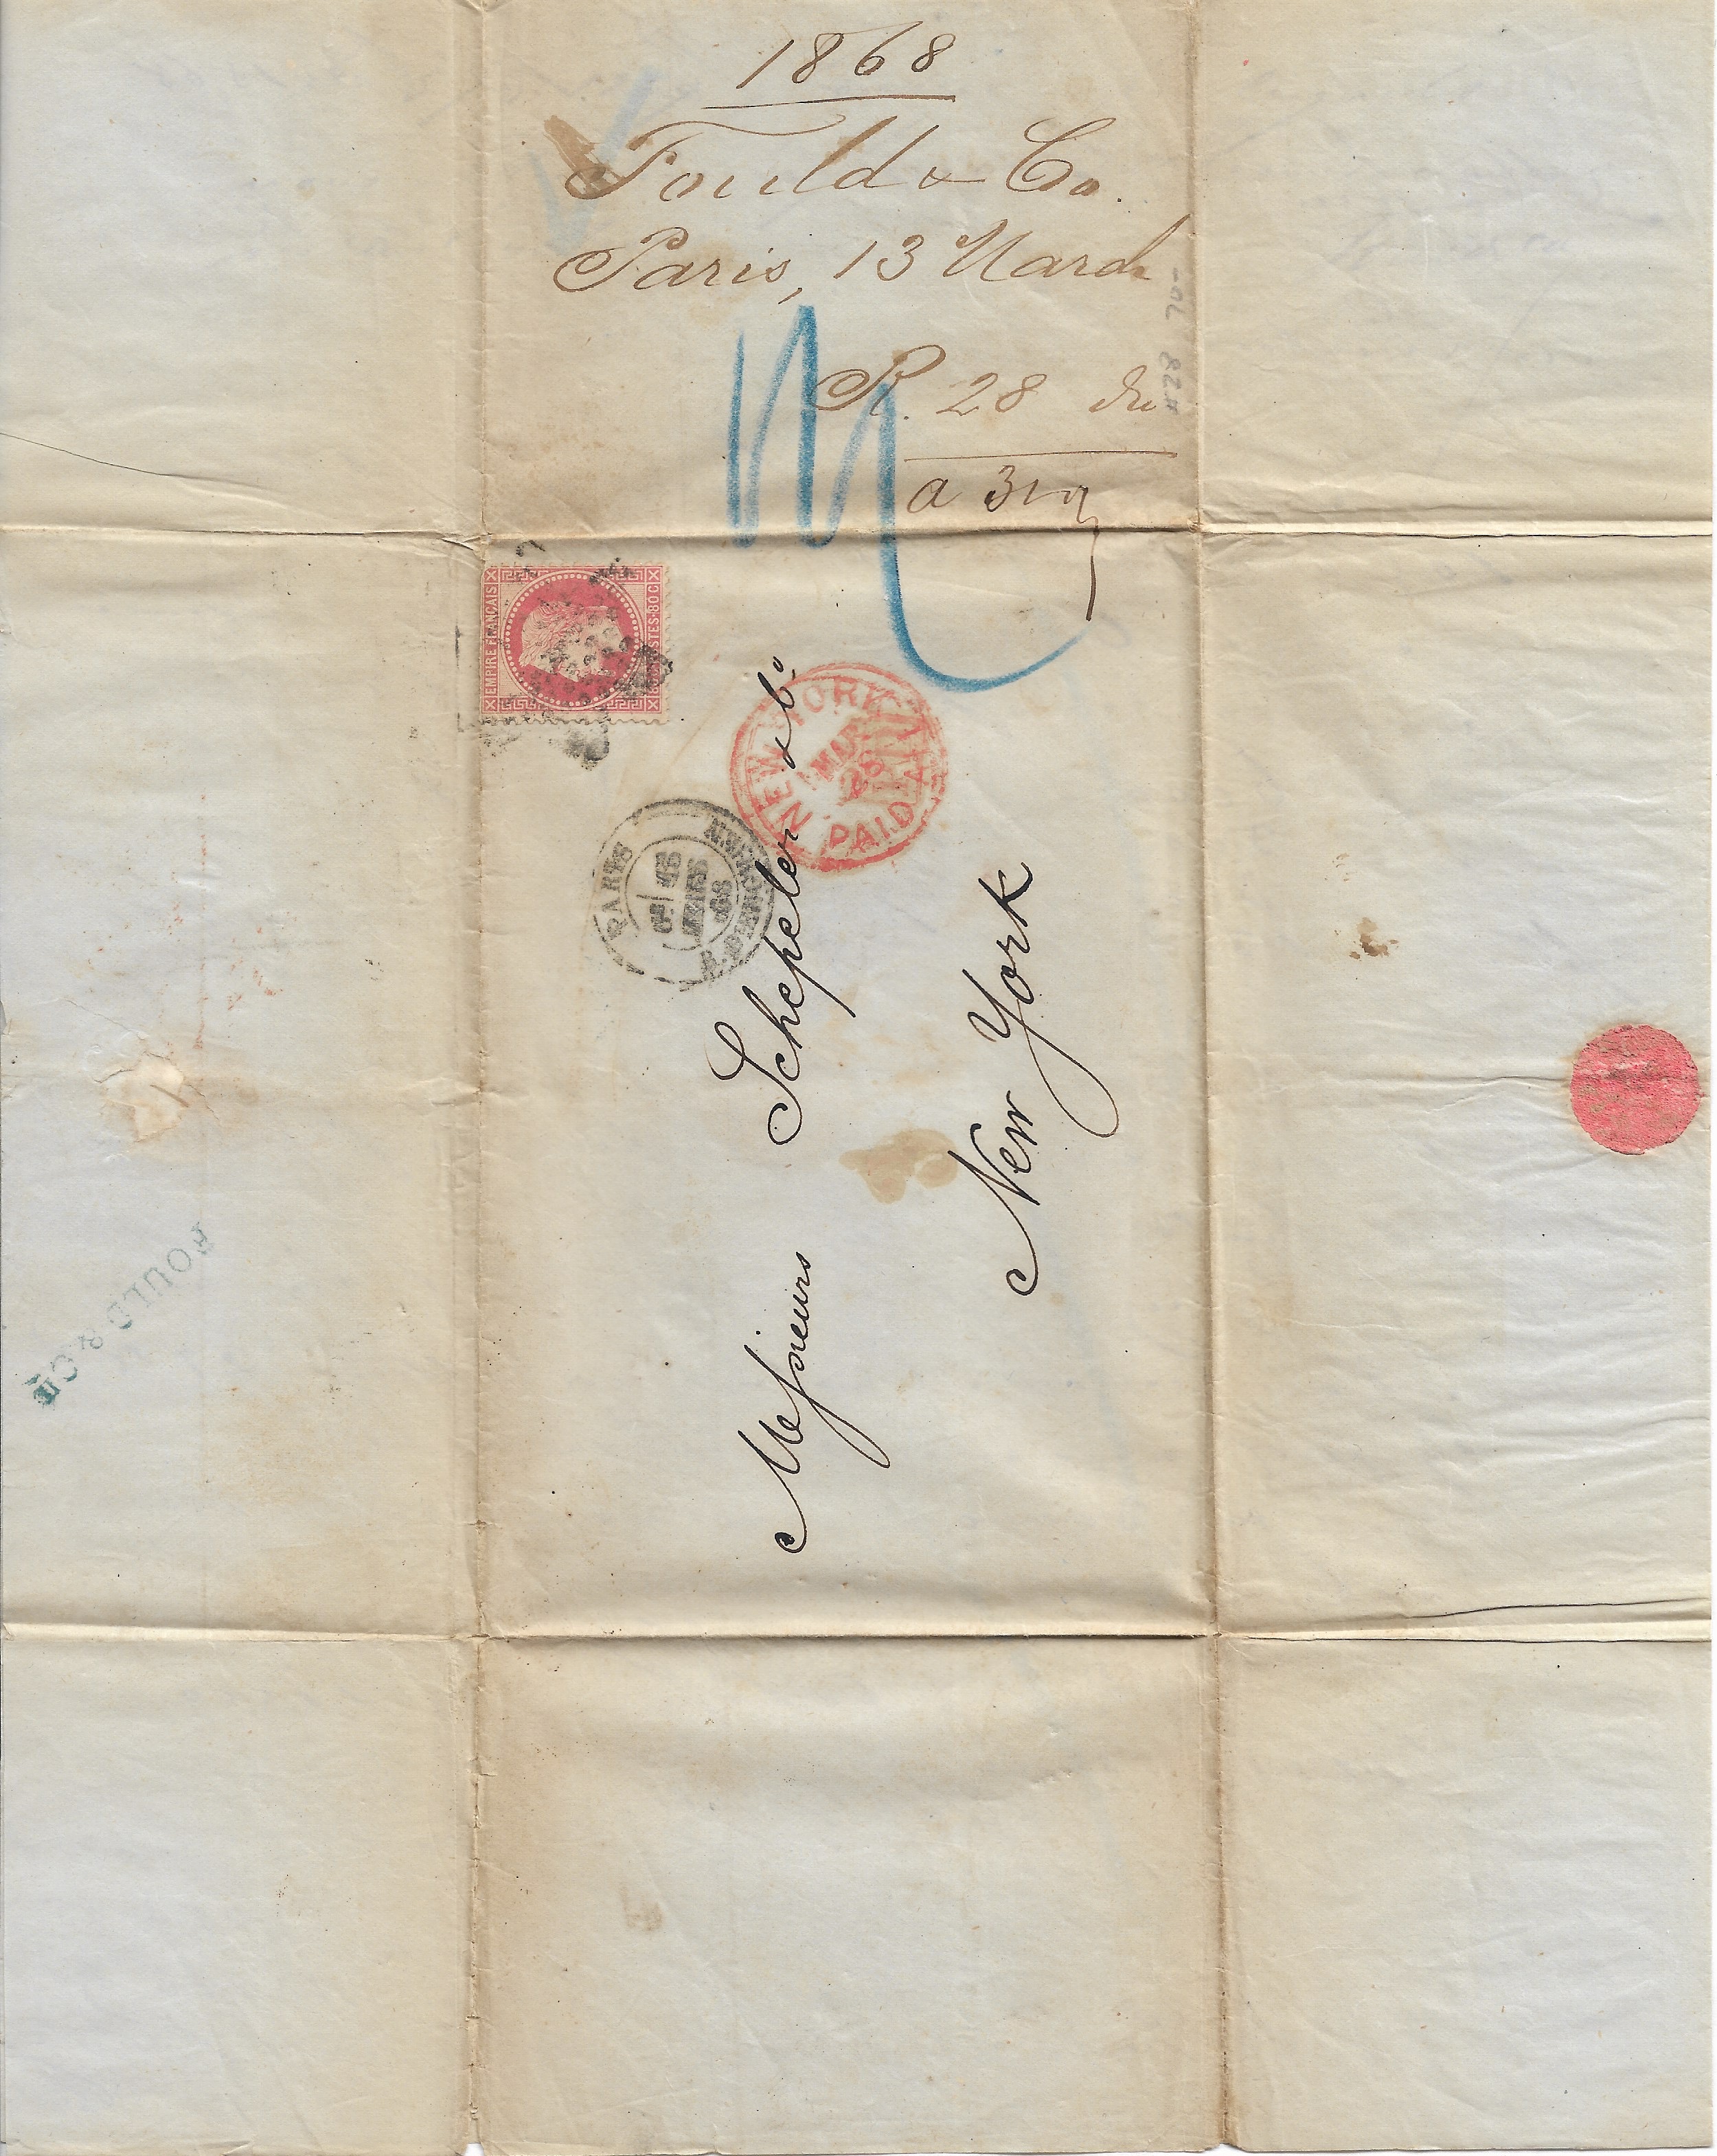 1868
Fould & Co.
Paris, 13 March
R. 28 du
a 31
EMPIRE FRANÇAIS
POSTES 80 C
NEW YORK
MAR
PAID
PARIS
MARS
68
Messieurs Schepeler & Co
New York
FOULD & CIE